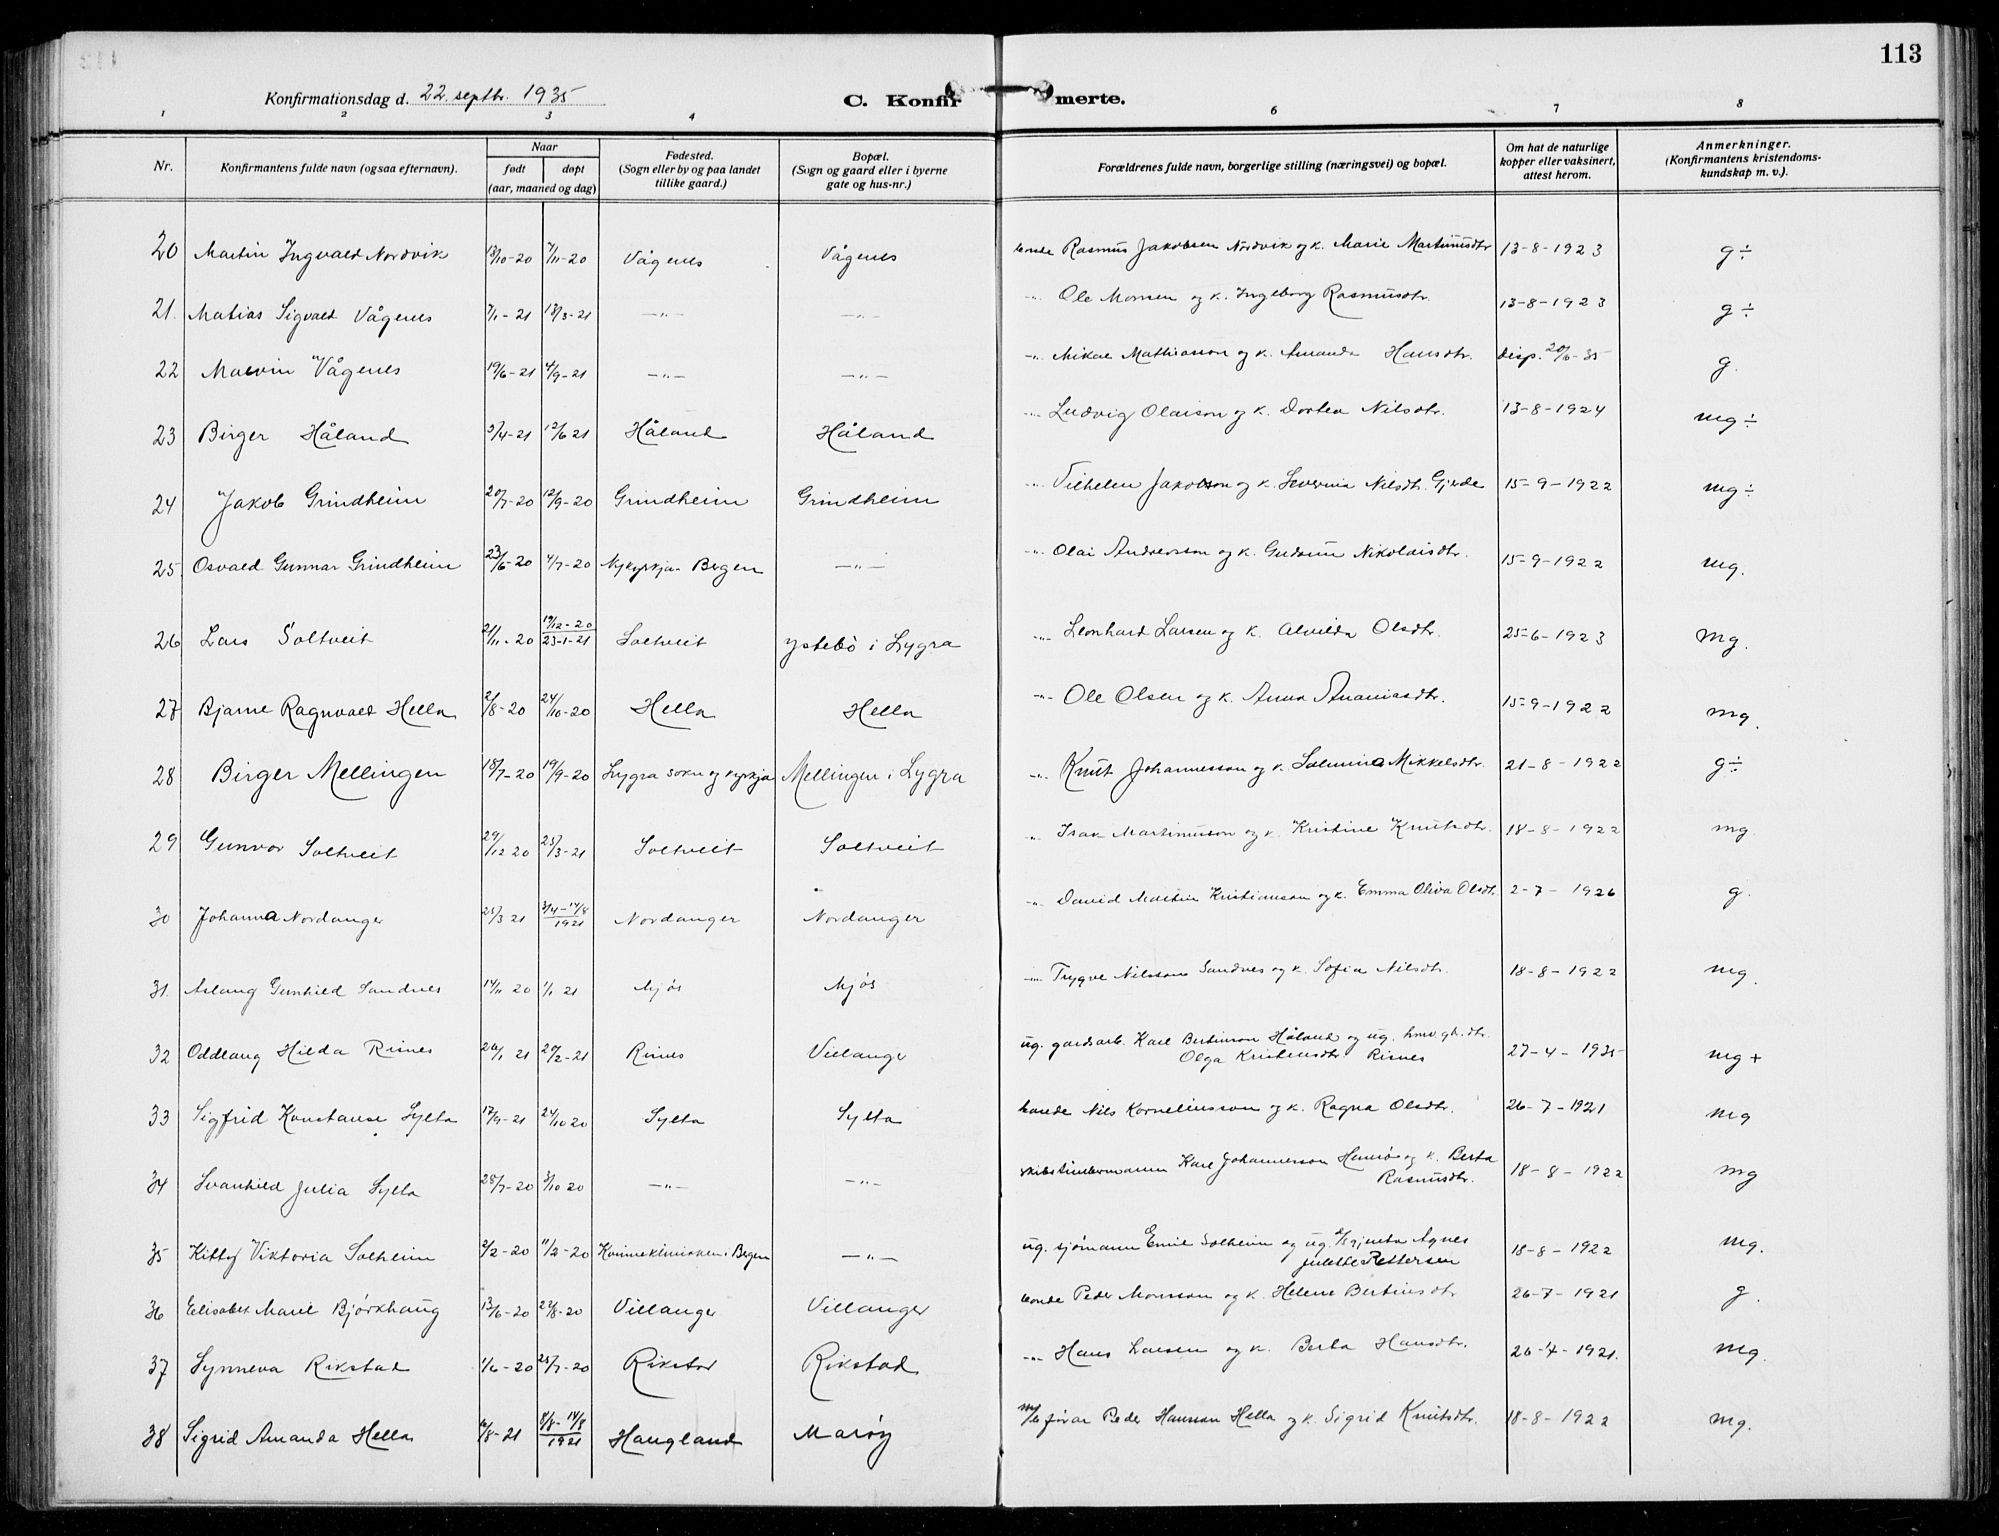 113
Konfirmationsdag d. 22. septbr. 1935
C. Konfirmerte.
1 2 3 4 6 7 8
Nr. Konfirmantens fulde navn (og saa efternavn). Naar født døpt (aar, maaned og dag) Fødested. (Sogn eller by og paa landet tillike gaard.) Bopæl. (Sogn og gaard eller i byerne gate og hus-nr.) Forældrenes fulde navn, borgerlige stilling (næringsvei) og bopæl. Om hat de naturlige kopper eller vaksinert, attest herom. Anmerkninger. (Konfirmantens kristendomskundskap m. v.).
20 Martin Ingvald Nordvik 13/10-20 7/11-20 Vågenes Vågenes bonde Rasmus Jakobsen Nordvik og k. Marie Martinusdtr 13-8-1923 g÷
21. Matias Sigvald Vågenes 7/1-21 13/3-21 —"— —"— -"- Ole Monsen og k. Ingeborg Rasmusdtr. 13-8-1923 g÷
22 Malvin Vågenes 19/6-21 4/9-21 —"— —"— -"- Mikal Mathiasson og k. Amanda Hansdtr. disp. 20/6-35 g.
23 Birger Håland 9/4-21 12/6 21 Håland Håland -"- Ludvig Olaison og k. Dortea Nilsdtr. 13-8-1924 mg÷
24 Jakob Grindheim 20/7-20 12/9-20 Grindheim Grindheim -"- Vilhelm Jakobson og k. Severina Nilsdtr. Gjerde 15-9-1922 mg÷
25 Osvald Gunnar Grindheim 23/5-20 4/7-20 Nykyrkja-Bergen —"— -"- Olai Andersson og k. Gudrun Nikolaisdtr. 15-9-1922 mg.
26 Lars Soltveit 21/11-20 19/12-20 23-1-21 Soltveit Ystebø i Lygra -"- Leonhard Larsen og k. Alvilda Olsdtr. 25-6-1923 mg.
27 Bjarne Ragnvald Hella 2/8-20 24/10-20 Hella Hella -"- Ole Olsen og k. Anna Ananiasdtr. 15-9-1922 mg.
28 Birger Mellingen 18/7-20 19/9-20 Lygra sokn og kyrkja Mellingen i Lygra -"- Knut Johannesson og k. Salmina Mikkelsdtr. 21-8-1922 g÷
29 Gunvor Soltveit 29/12 20 25/3-21 Soltveit Soltveit " Isak Martinusson og k. Kristine Knutsdtr. 18-8-1922 mg.
30 Johanna Nordanger 25/3 21 3/4-14/8 1921 Nordanger Nordanger " David Martin Kristianson og k. Emma Oliva Olsdtr. 2-7-1926 g.
31. Aslaug Gunhild Sandnes 14/11 20 1/1 21 Mjøs Mjøs -"- Trygve Nilsson Sandnes og k. Sofia Nilsdtr. 18-8-1922 mg.
32 Oddlaug Hilda Risnes 20/1 21 20/2-21 Risnes Villanger ug. gardsarb. Karl Bertinson Håland og ug. hmv. gb.dtr. Olga Kristensdtr Risnes 27-4-1935 mg+
33 Sigfrid Konstanse Sylta 17/9-21 24/10 20 Sylta Sylta bonde Nils Korneliusson og k. Ragna Olsdtr. 26-7-1921 mg
34 Svanhild Julia Sylta 28/7-20 3/10 20 —"— —"— skibstimbermann Karl Johannesson Hamsø og k. Berta Rasmusdtr. 18-8-1922 mg
35 Kitty Viktoria Solheim 2/2-20 11/2-20 Kvinneklinikken i Bergen —"— ug. sjømann Emil Solheim og ug. gjenta Agnes Julette Pettersen 18-8-1922 mg.
36 Elisabet Marie Bjørkhaug 13/6-20 22/8-20 Villanger Villanger bonde Peder Monsson og k. Helene Bertinsdtr 26-7-1921 g.
37 Synneva Rikstad 1/6-20 25/7-20 Rikstad Rikstad -"- Hans Larsen og k. Berta Hansdtr. 26-4-1921. mg.
38 Sigrid Amanda Hella 6/8-21 8/8-14/8 1921 Haugland Marøy m/b førar Peder Hansson Hella og k. Sigrid Knutsdtr. 18-8-1922 mg.